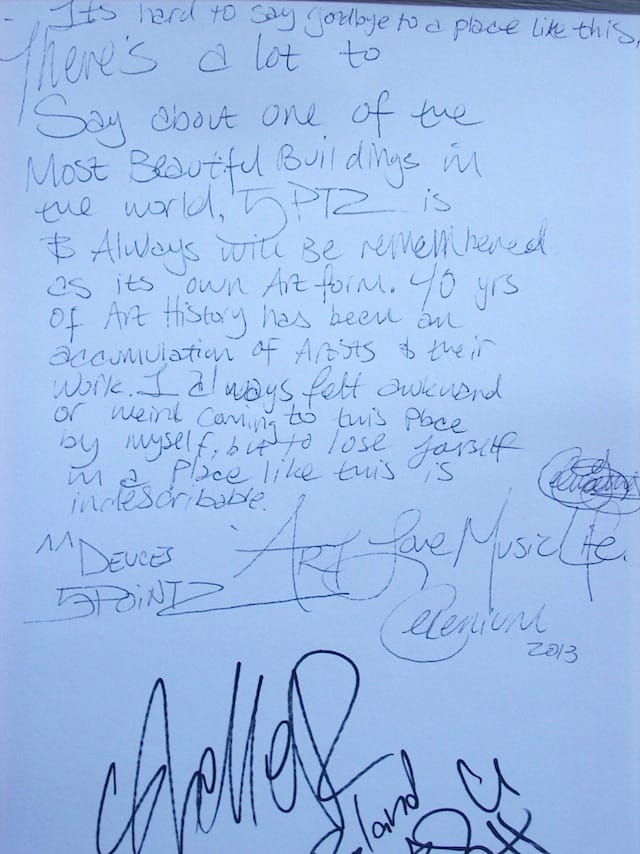 - Its hard to say goodbye to a place like this,
There's a lot to
Say about one of the
Most Beautiful Buildings in
the world, 5PTZ is
& Always will Be remembered
as its own Art form. 40 yrs
of Art History has been an
accumulation of Artists & their
work. I always felt awkward
or weird coming to this place
by myself, but to lose yourself
in a place like this is
indescribable.
"DEUCES
5POINTZ
Art Love Music Life.
2013